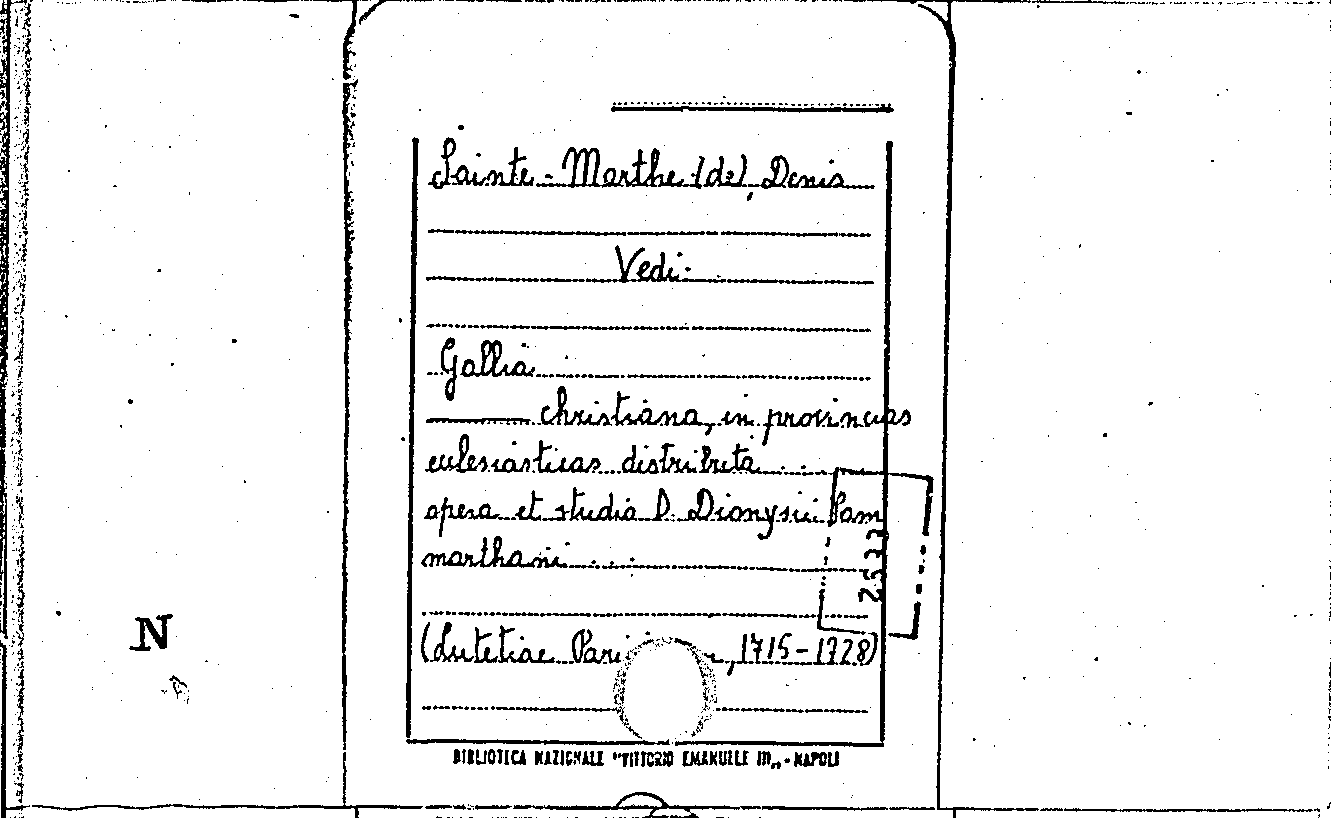 Sainte-Marthe (de), Denis
Vedi:
Gallia
christiana, in provincias
ecclesiasticas distributa . . .
opera et studio D. Dionysii Sam
marthani . . .
(Lutetiae , 1715-1728)
N
BIBLIOTECA NAZIONALE "VITTORIO EMANUELE III„ - NAPOLI